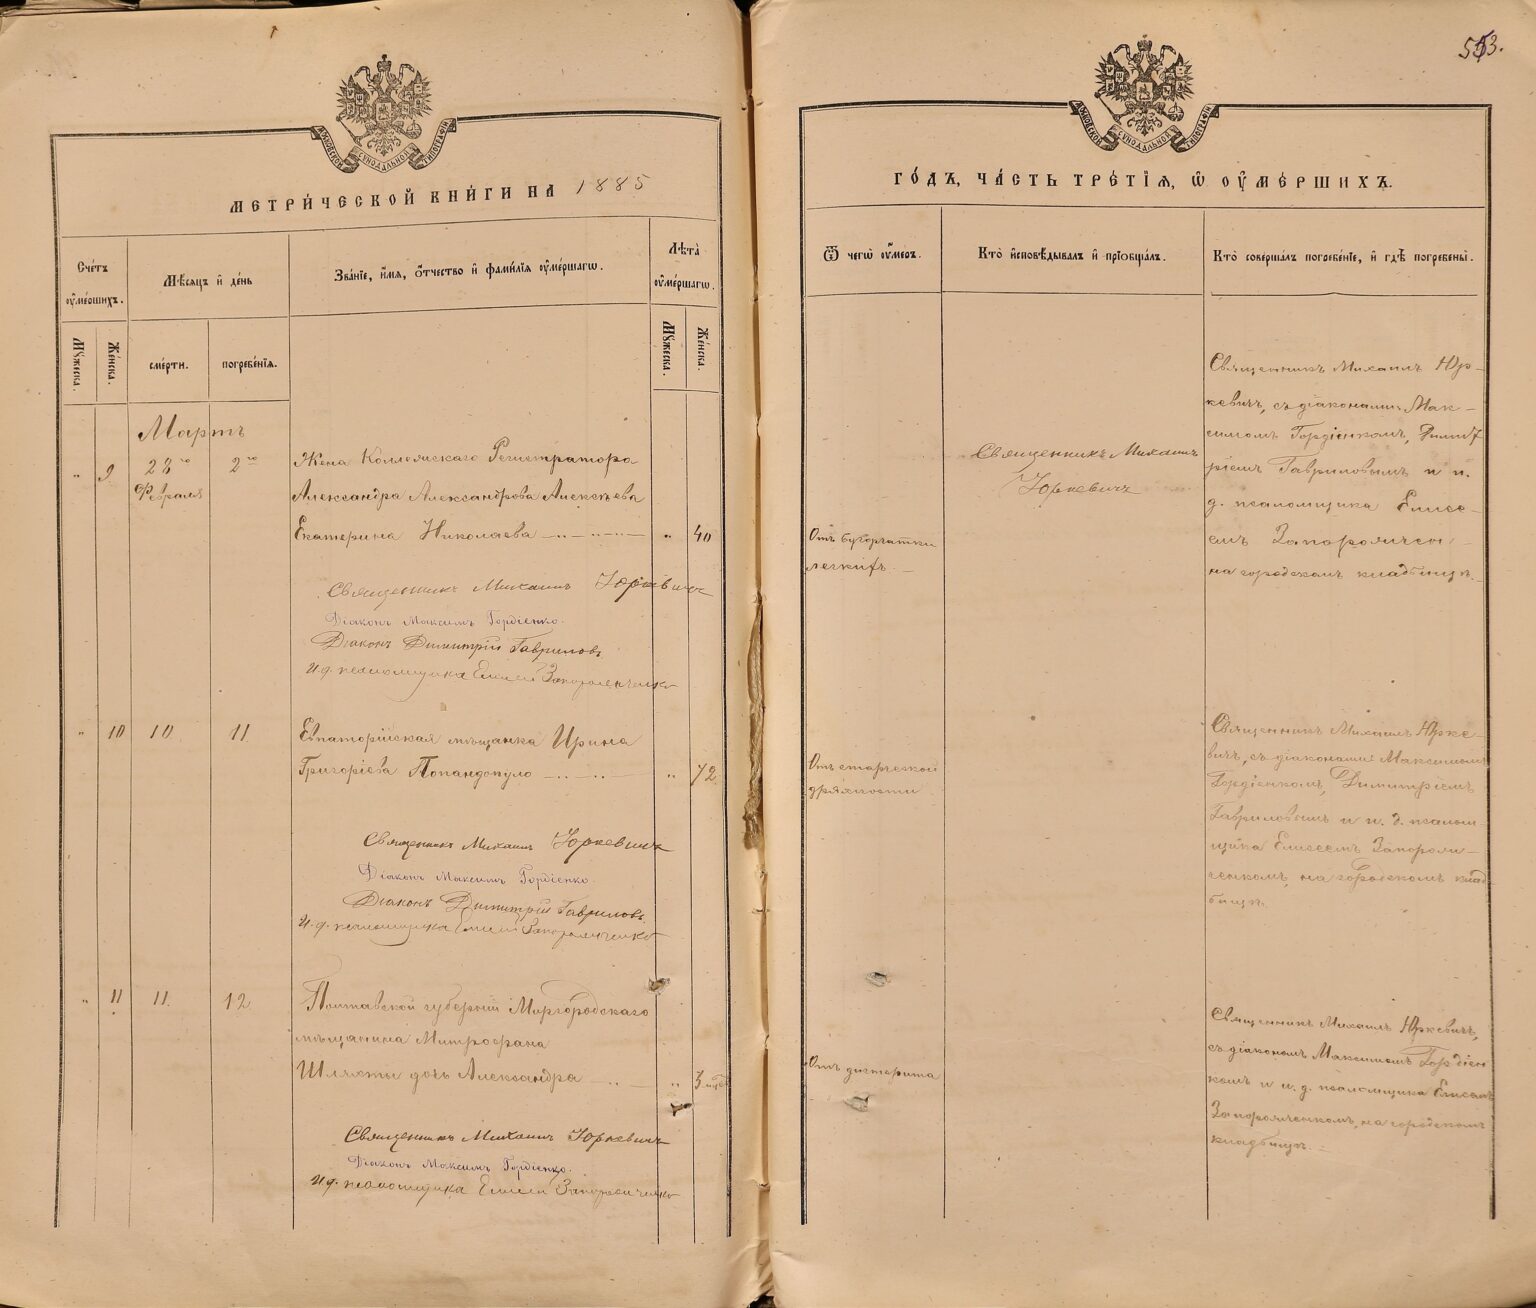 МОСКОВСКОЙ СѴНОДАЛЬНОЙ ТИПОГРАФІИ
МЕТРИ́ЧЕСКОЙ КНИ́ГИ НА 1885
Сче́тъ оу҆ме́ршихъ.
Мѣ́сяцъ и҆ де́нь
Зва́нїе, и҆́мя, ѻ҆́тчество и҆ фами́лїя оу҆ме́ршагѡ.
Лѣ́та оу҆ме́ршагѡ.
Мꙋ́жеска.
Же́нска.
сме́рти.
погребе́нїя.
Мꙋ́жеска.
Же́нска.
Мартъ
" 9 28го Февраля 2го
Жена Коллежскаго Регистратора
Александра Александрова Алексѣева
Екатерина Николаева " 40
Священникъ Михаилъ Юркевичъ
Діаконъ Максимъ Гордіенко.
Діаконъ Димитрій Гавриловъ
И.д. псаломщика Елисей Запорожченко
" 10 10 11
Евпаторійская мѣщанка Ирина
Григоріева Попандопуло " 72
Священникъ Михаилъ Юркевичъ
Діаконъ Максимъ Гордіенко.
Діаконъ Димитрій Гавриловъ.
И.д. псаломщика Елисей Запорожченко
" 11 11. 12
Полтавской губерніи Миргородскаго
мѣщанина Митрофана
Шляхты дочь Александра " 3 мѣс
Священникъ Михаилъ Юркевичъ
Діаконъ Максимъ Гордіенко.
И.д. псаломщика Елисей Запорожченко
МОСКОВСКОЙ СѴНОДАЛЬНОЙ ТИПОГРАФІИ
ГО́ДЪ, ЧА́СТЬ ТРЕ́ТЇЯ, Ѡ҆ ОУ҆МЕ́РШИХЪ.
Ѿ чегѡ̀ оу҆́меръ.
Кто̀ и҆сповѣ́дывалъ и҆ прїѻбща́лъ.
Кто̀ соверша́лъ погребе́нїе, и҆ гдѣ̀ погребены̀.
Отъ бугорчатки
легкихъ.
Священникъ Михаилъ
Юркевичъ
Священникъ Михаилъ Юр-
кевичъ, съ діаконами: Мак-
симомъ Гордіенкомъ, Димит-
ріемъ Гавриловымъ и и.
д. псаломщика Елисе-
емъ Запорожчен-
на городскомъ кладбищѣ.
Отъ старческой
дряхлости
Священникъ Михаилъ Юрке-
вичъ, съ діаконами: Максимомъ
Гордіенкомъ, Димитріемъ
Гавриловымъ и и. д. псалом-
щика Елисеемъ Запорож-
ченкомъ, на городскомъ клад-
бищѣ.
Отъ дифтерита
Священникъ Михаилъ Юркевичъ,
съ діакономъ Максимомъ Гордіен-
комъ и и. д. псаломщика Елисеемъ
Запорожченкомъ, на городскомъ
кладбищѣ.